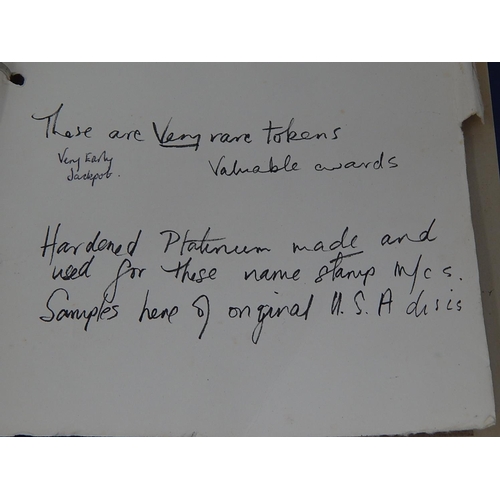 These are Very rare tokens
Very Early
Jackpot.
Valuable awards
Hardened Platinum made and
used for these name stamp M/cs.
Samples here of original U.S.A discs